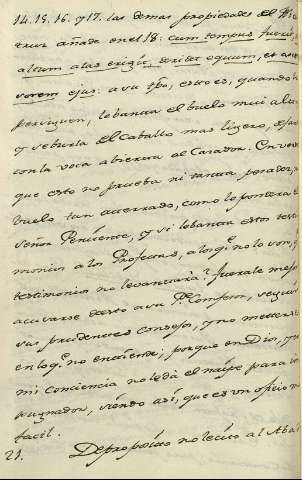 14. 15. 16. y 17. las demas propiedades del
truz añade en el 18: cum tempus fuerit,
altum alas erigit, deridet equum, et asce
sorem ejus: a su tpō, esto es, quando le
persiguen, lebanta el buelo mui alto
y se burla el Caballo mas ligero, dejan
con la boca abierta al Cazador. En ver
que esto no prueba ni tanta pesadez,
buelo tan acerrado, como lo pondera el
Señor Penitente, y si lebanta estos testi
monios a los Profetas, a los qe. no lo son, q
testimonios no levantaria? fuerale mejor
acusarse desto a su Pe. Confesor, seguir
sus prudentes consejos, y no meterse
en lo qe. no entiende; porque en Dios, y en
mi conciencia no le dió el naipe para im
pugnador, siendo asi, que es un oficio m
facil.
21. De proposito no lecito al Aba